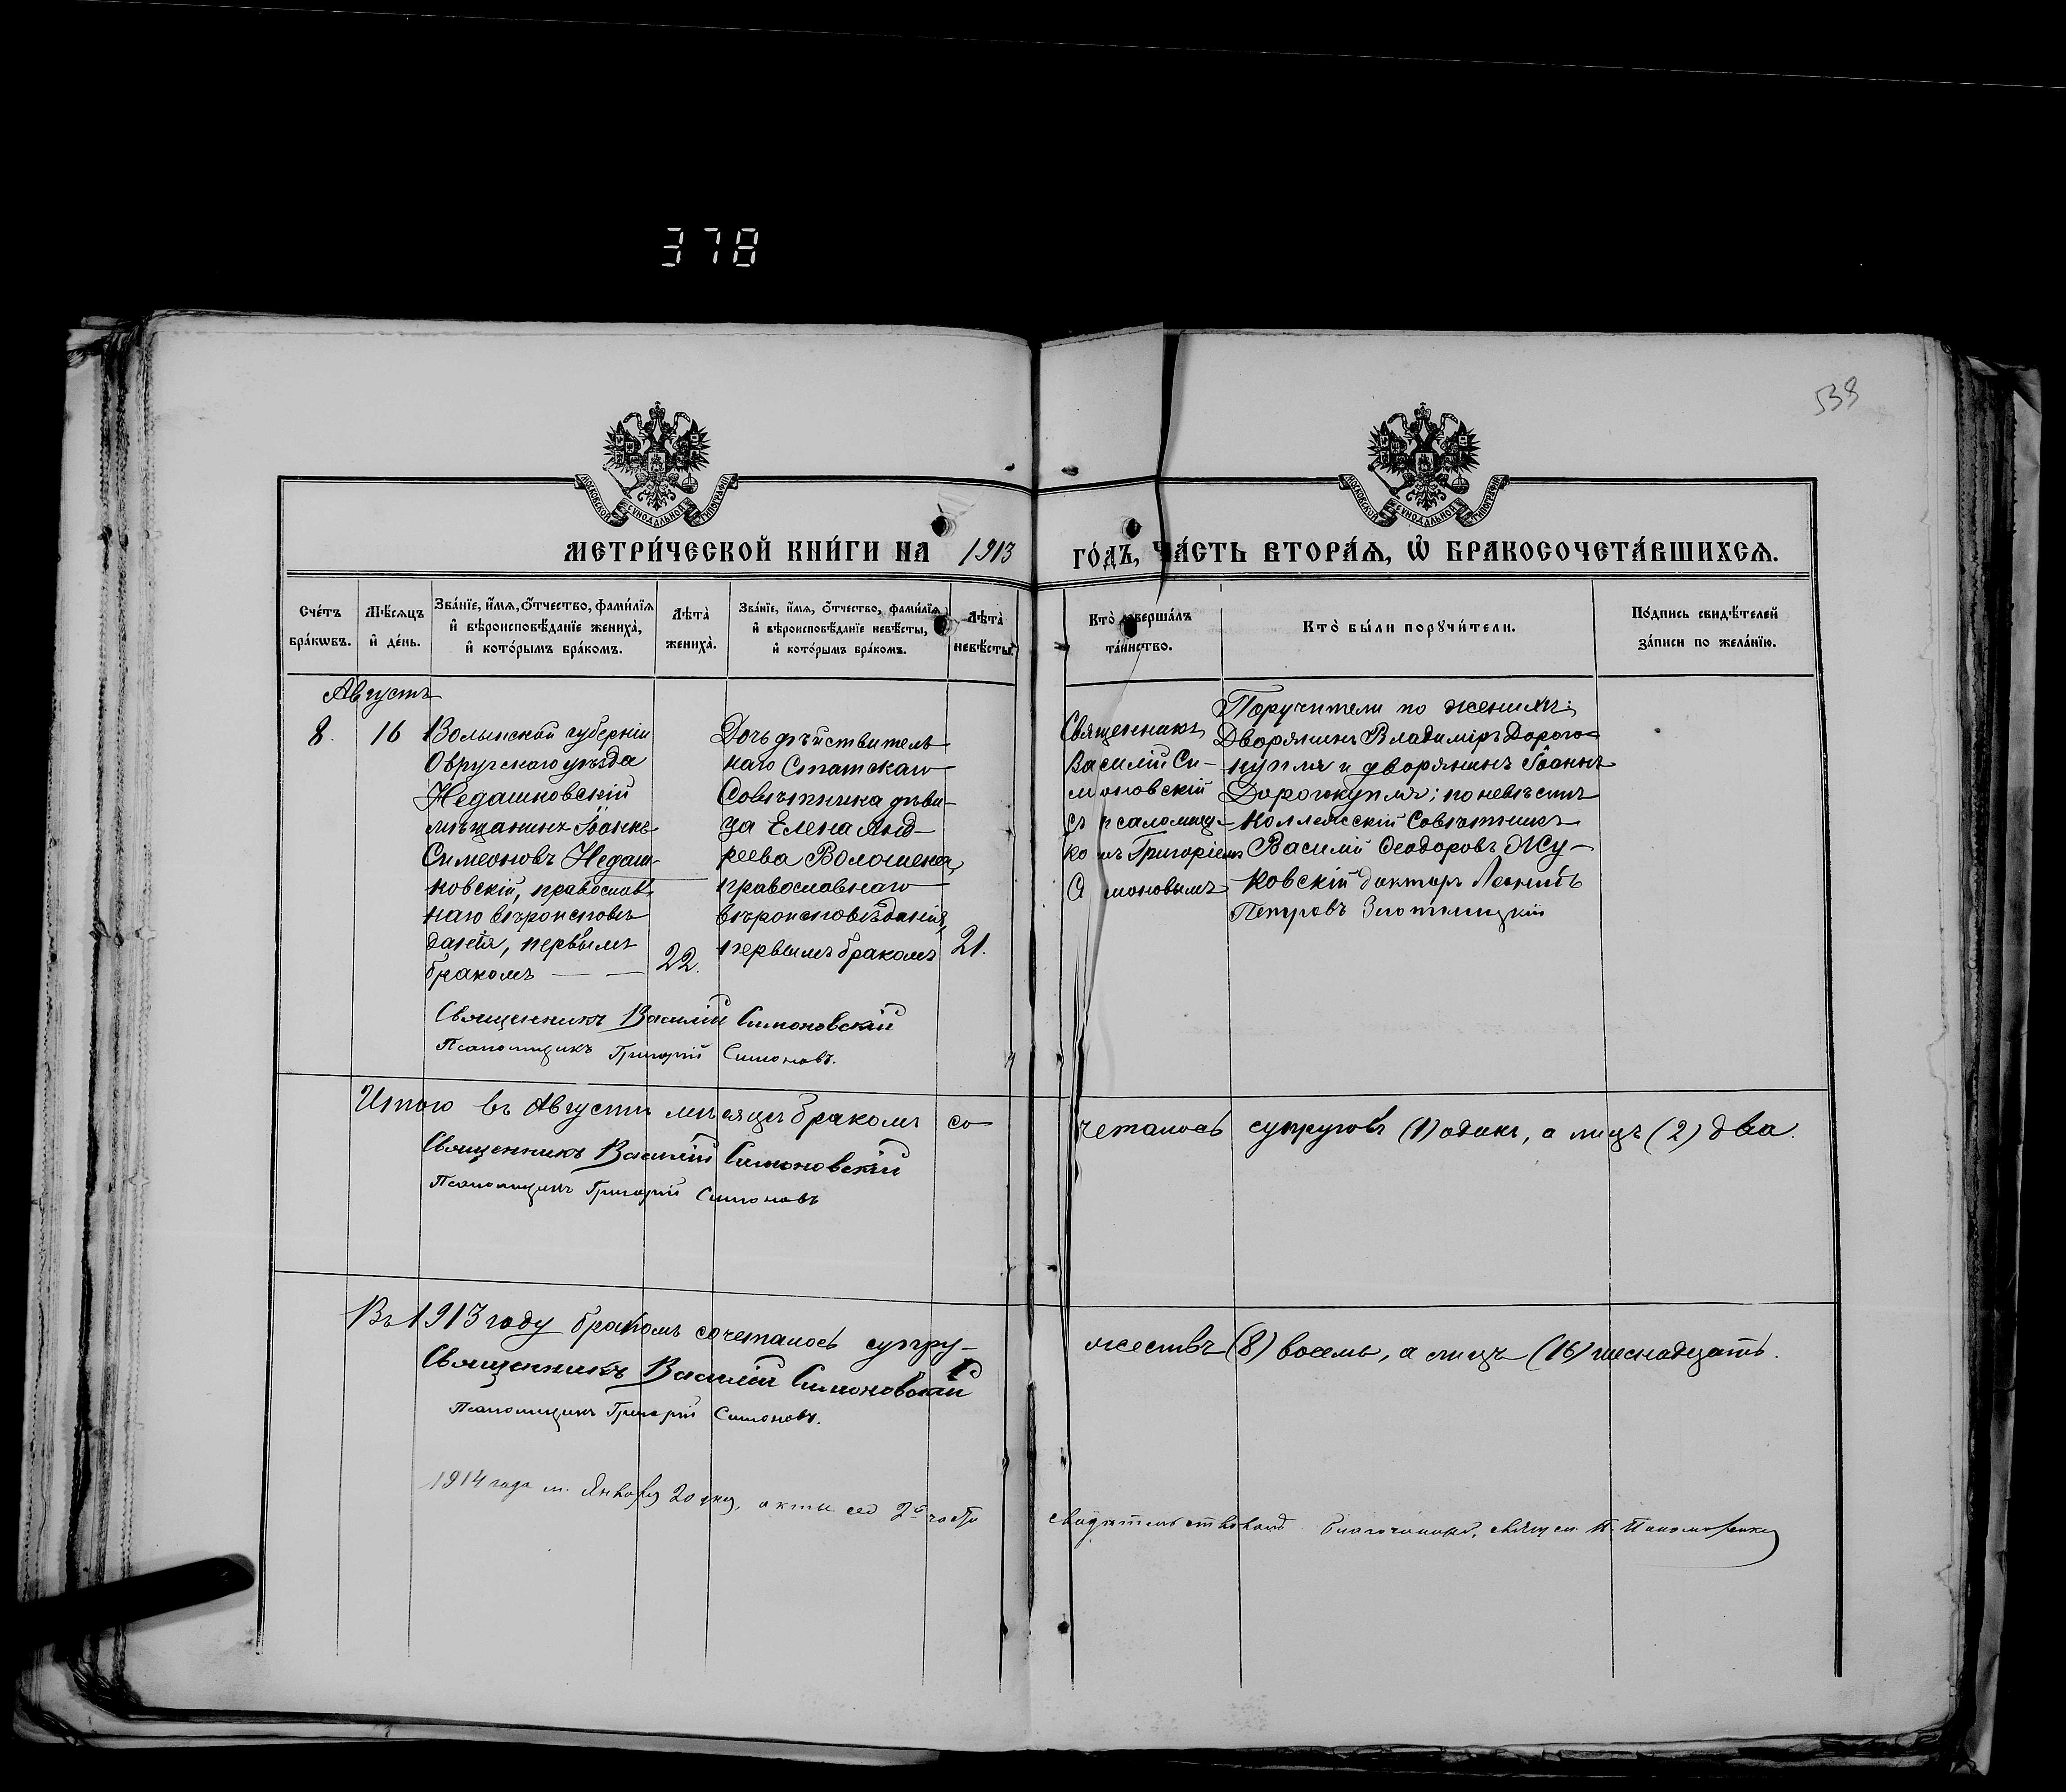 378
538
МОСКОВСКОЙ СѴНОДАЛЬНОЙ ТИПОГРАФІИ
МОСКОВСКОЙ СѴНОДАЛЬНОЙ ТИПОГРАФІИ
МЕТРИ́ЧЕСКОЙ КНИ́ГИ НА 1913 ГО́ДЪ, ЧА́СТЬ ВТОРА́Ѧ, Ѽ БРАКОСОЧЕТА́ВШИХСѦ.
Сче́тъ
бра́кѡвъ.
Мѣ́сѧцъ
и҆ де́нь.
Зва́нїе, и҆́мѧ, ѻ҆́тчество, фами́лїѧ
и҆ вѣроисповѣ́данїе жениха̀,
и҆ кото́рымъ бра́комъ.
Лѣта̀
жениха̀.
Зва́нїе, и҆́мѧ, ѻ҆́тчество, фами́лїѧ
и҆ вѣроисповѣ́данїе невѣ́сты,
и҆ кото́рымъ бра́комъ.
Лѣта̀
невѣ́сты.
Кто̀ соверша́лъ
та́инство.
Кто̀ бы́ли порꙋчи́тели.
По́дпись свидѣ́телей
за́писи по жела́нїю.
Августъ
8.
16
Волынской губерніи
Овручскаго уѣзда
Недашковскій
мѣщанинъ Іоаннъ
Симеоновъ Недаш-
ковскій, православ
наго вѣроисповѣ
данія, первымъ
бракомъ
22.
Дочь дѣйствитель
наго Статскаго
Совѣтника дѣви-
ца Елена Анд-
реева Волошенко,
православнаго
вѣроисповѣданія,
первымъ бракомъ
21.
Священникъ
Василій Си-
моновскій
съ псаломщи-
комъ Григоріемъ
Симоновымъ
Поручители по женихѣ:
Дворянинъ Владиміръ Дорого-
купля и дворянинъ Іоаннъ
Дорогокупля; по невѣстѣ
Коллежскій Совѣтникъ
Василій Ѳеодоровъ Жу-
ковскій докторъ Леонидъ
Петровъ
Священникъ Василій Симоновскій
Псаломщикъ Григорій Симоновъ.
Итого въ Августѣ мѣсяцѣ бракомъ со
четалось супруговъ (1) одинъ, а лицъ (2) два.
Священникъ Василій Симоновскій
Псаломщикъ Григорій Симоновъ
Въ 1913 году бракомъ сочеталось супру-
жествъ (8) восемь, а лицъ (16) шеснадцать.
Священникъ Василій Симоновскій
Псаломщикъ Григорій Симоновъ.
1914 года м. Января 20 дня, акты сей 2й части
свидѣтельствовалъ Благочинный, священ. П. Пономаренко